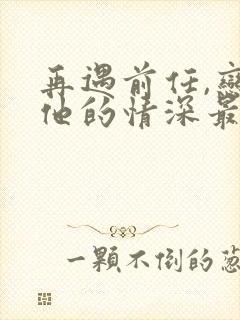 再遇前任,
他的情深最
一顆不倒的蔥